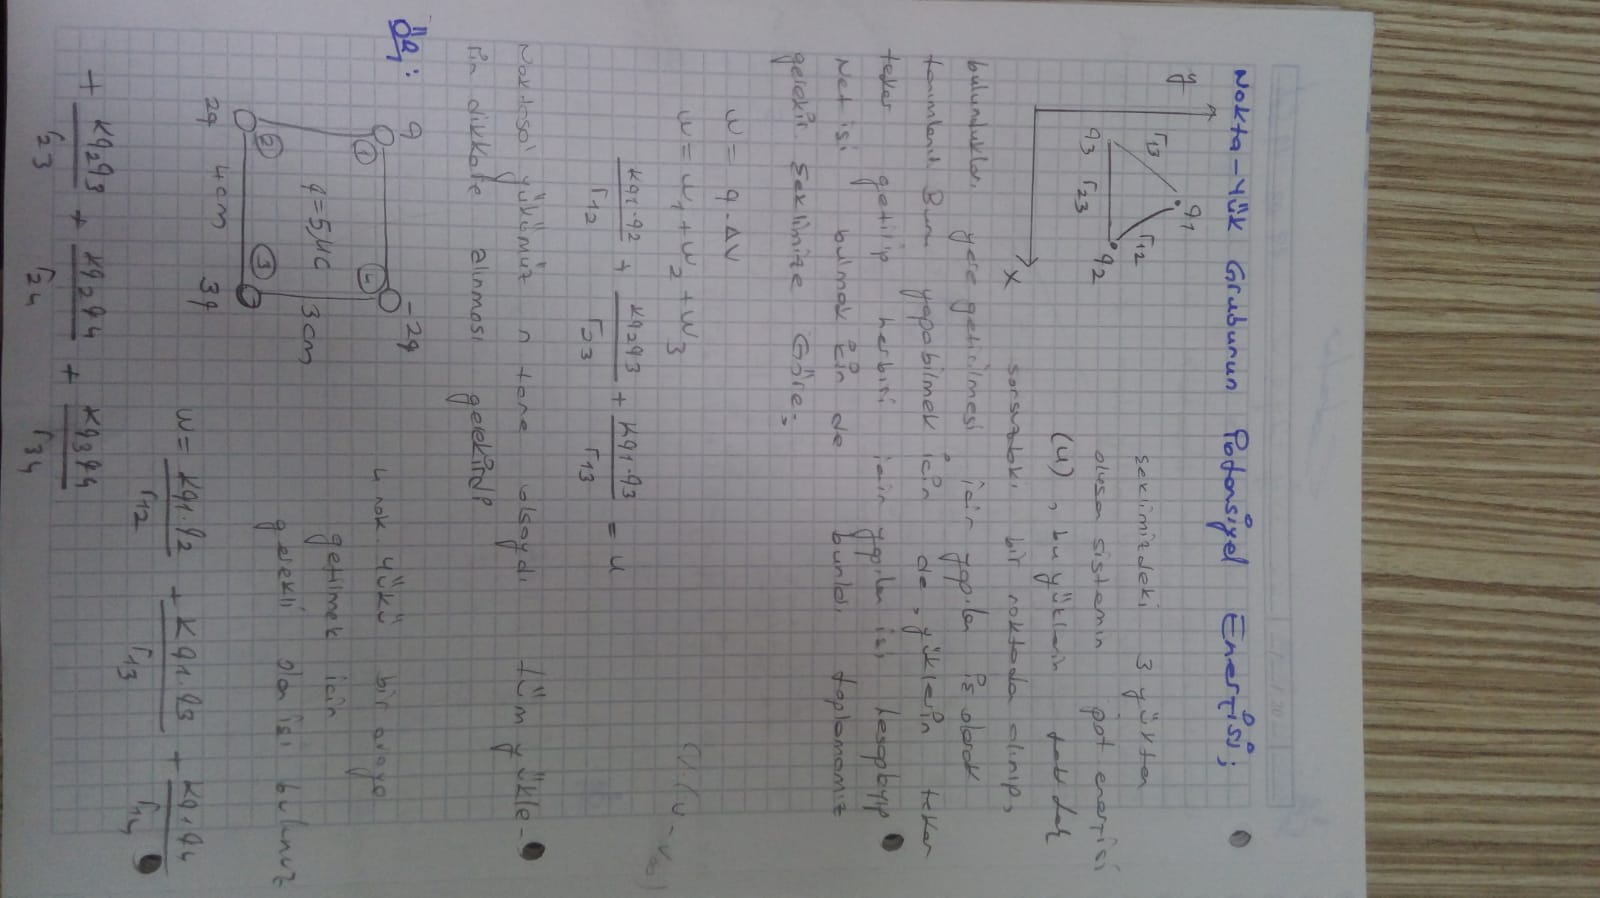 Nokta-Yük Grubunun Potansiyel Enerjisi;
y
q1
r13
r12
q3
r23
q2
x
şekimizdeki 3 yükten
oluşan sistemin pot enerjisi
(u), bu yüklerin
sonsuzdaki bir noktada alınıp,
bulundukları yere getirilmesi için yapılan iş olarak
tanımlanır. Bunu yapabilmek için de, yüklerin teker
teker getirip herbiri için yapılan işi hesaplayıp
Net işi bulmak için de bunları toplamamız
gerekir. Şeklimize Göre;
W = q.ΔV
W = W1 + W2 + W3
Kq1.q2/r12 + Kq2q3/r23 + Kq1.q3/r13 = u
Noktasal yükümüz n tane olsaydı tüm yükle-
rin dikkate alınması gerekirdi
Ör:
q
-2q
①
④
q=5μC
3cm
②
③
2q
4cm
3q
4 nok. yükü bir araya
getirmek için
gerekli olan işi bulunuz
W = Kq1.q2/r12 + Kq1.q3/r13 + Kq1q4/r14
+ Kq2q3/r23 + Kq2q4/r24 + Kq3q4/r34